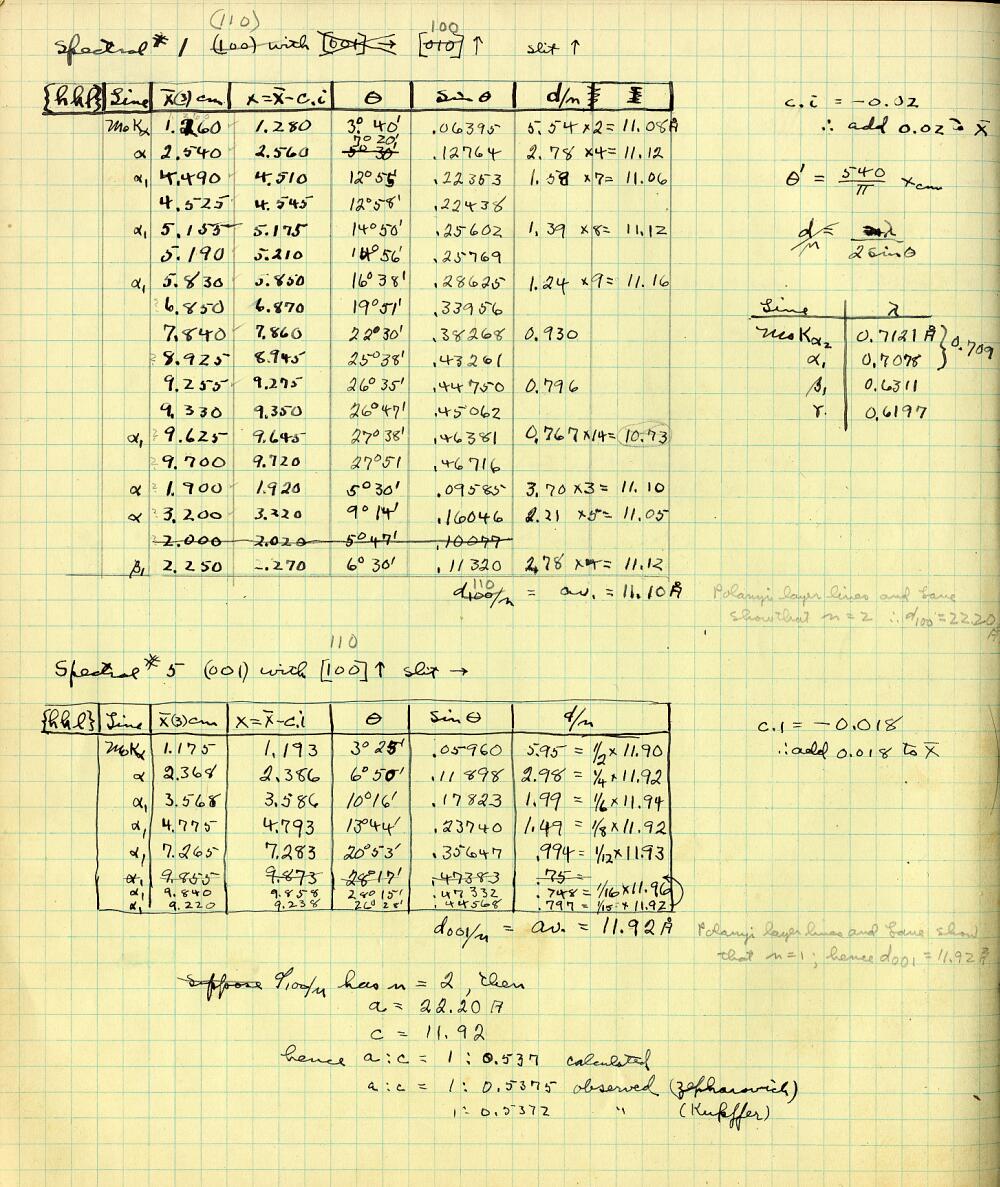 (110) 100
Spectral # 1 (100) with [001] → [010] ↑ slit ↑
{hhl} Line x̄(3)cm x=x̄-c.i θ Sin θ d/n
MoKα 1.260 1.280 3° 40' .06395 5.54 ×2= 11.08Å
7° 20'
α 2.540 2.560 5° 30' .12764 2.78 ×4= 11.12
α₁ 4.490 4.510 12°55' .22353 1.58 ×7= 11.06
4.525 4.545 12°58' .22438
α₁ 5.155 5.175 14°50' .25602 1.39 ×8= 11.12
5.190 5.210 14°56' .25769
α₁ 5.830 5.850 16°38' .28625 1.24 ×9= 11.16
6.850 6.870 19°51' .33956
7.840 7.860 22°30' .38268 0.930
8.925 8.945 25°38' .43261
9.255 9.275 26°35' .44750 0.796
9.330 9.350 26°47' .45062
α₁ 9.625 9.645 27°38' .46381 0.767 ×14= 10.73
9.700 9.720 27°51 .46716
α 1.900 1.920 5°30' .09585 3.70 ×3= 11.10
α 3.200 3.220 9°14' .16046 2.21 ×5= 11.05
2.000 2.020 5°47' .10077
β₁ 2.250 2.270 6°30' .11320 2.78 ×4= 11.12
110
d100/n = av. = 11.10Å
c.i = -0.02
∴ add 0.02 to x̄
θ' = 540/π x cm
d/n = λ/2sinθ
Line λ
MoKα₂ 0.7121 Å } 0.709
α₁ 0.7078
β₁ 0.6311
γ. 0.6197
Polanyi layer lines and Laue
show that n=2 ∴ d100=22.20
Å
110
Spectral # 5 (001) with [100] ↑ slit →
{hhl} Line x̄(3)cm x=x̄-c.i θ Sin θ d/n
MoKα 1.175 1.193 3° 25' .05960 5.95 = 1/2×11.90
α 2.368 2.386 6°50' .11898 2.98 = 1/4×11.92
α₁ 3.568 3.586 10°16' .17823 1.99 = 1/6×11.94
α₁ 4.775 4.793 13°44' .23740 1.49 = 1/8×11.92
α₁ 7.265 7.283 20°53' .35647 .994= 1/12×11.93
α₁ 9.855 9.873 28°17' .47383 .75 =
α₁ 9.840 9.858 28°15' .47332 .748= 1/16×11.96
α₁ 9.220 9.238 26°28' .44568 .797= 1/15×11.92
d001/n = av. = 11.92Å
c.i = -0.018
∴ add 0.018 to x̄
Polanyi layer lines and Laue show
that n=1; hence d001 = 11.92 Å
Suppose d100/n has n = 2, then
a = 22.20 Å
c = 11.92
hence a:c = 1 : 0.537 calculated
a:c = 1: 0.5375 observed (Zepharovich)
1: 0.5372 " (Kupffer)